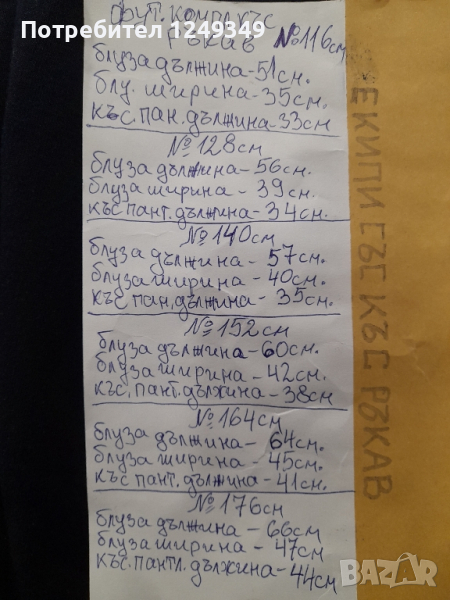 Потребител 1249349
фут. комп. къс
ръкав №116см
блуза дължина-51см.
блу. ширина-35см.
къс. пан. дължина-33см
№128см
блуза дължина-56см.
блуза ширина-39см.
къс пант. дължина-34см.
№140см
блуза дължина-57см.
блуза ширина-40см.
къс пан. дължина-35см.
№152см
блуза дължина-60см.
блуза ширина-42см.
къс. пант. дължина-38см
№164см
блуза дължина-64см.
блуза ширина-45см.
къс пант. дължина-41см.
№176см
блуза дължина-66см
блуза ширина-47см
къс пантл. дължина-44см
ЕКИПИ СЪС КЪС РЪКАВ
BAZAR